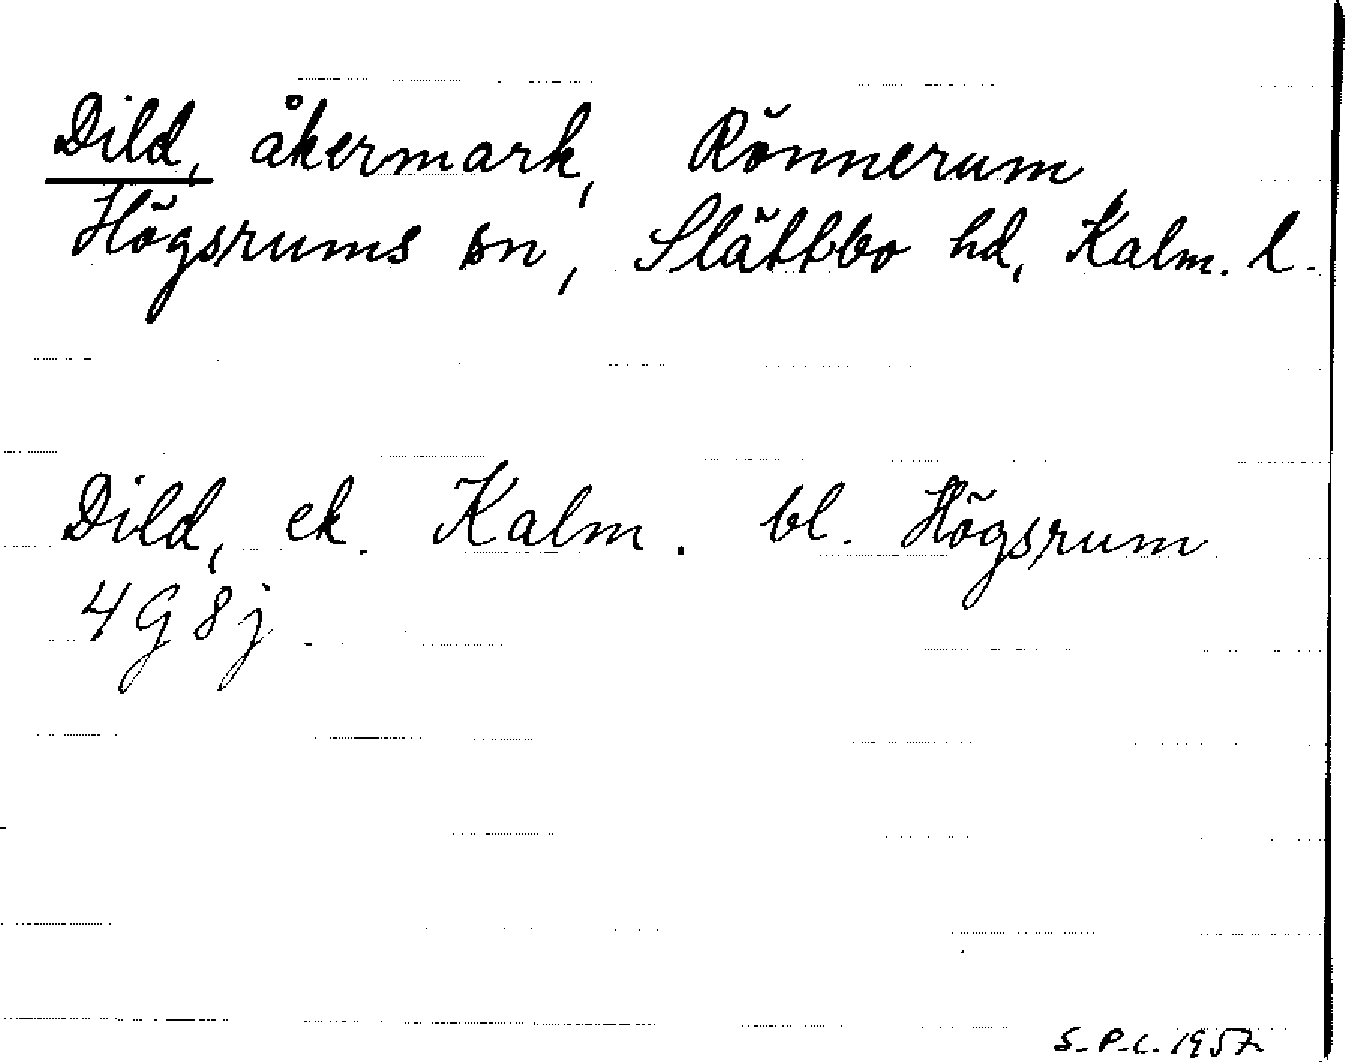 Dild, åkermark, Rönnerum,
Högsrums sn, Slättbo hd, Kalm. l.
Dild, ek. Kalm. bl. Högsrum
4G 8j
S.P.L. 1957